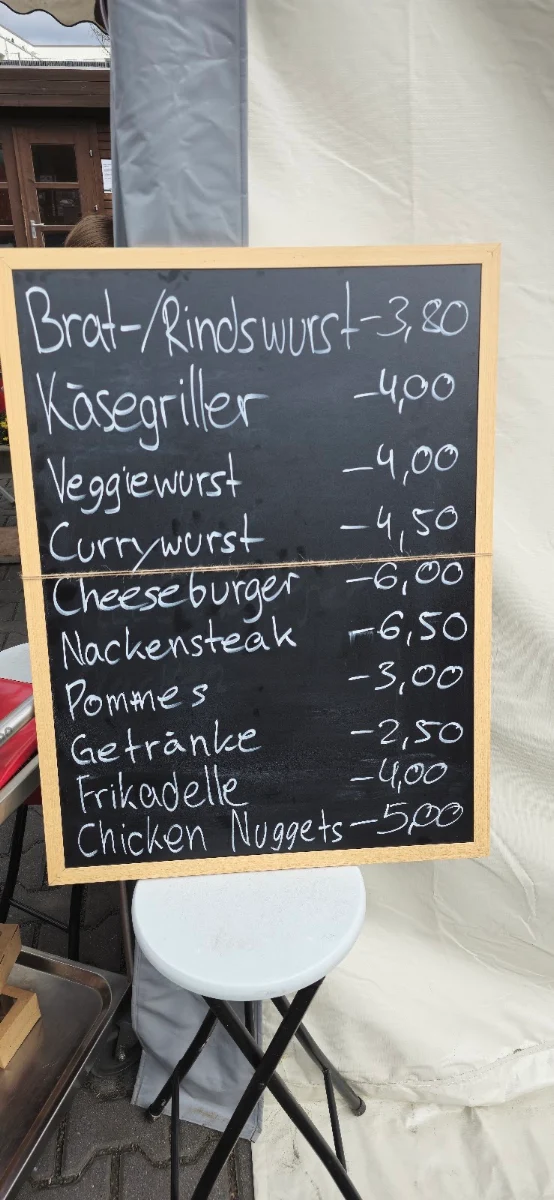 Brat-/Rindswurst-3,80
Käsegriller -4,00
Veggiewurst -4,00
Currywurst -4,50
Cheeseburger -6,00
Nackensteak -6,50
Pommes -3,00
Getränke -2,50
Frikadelle -4,00
Chicken Nuggets-5,00